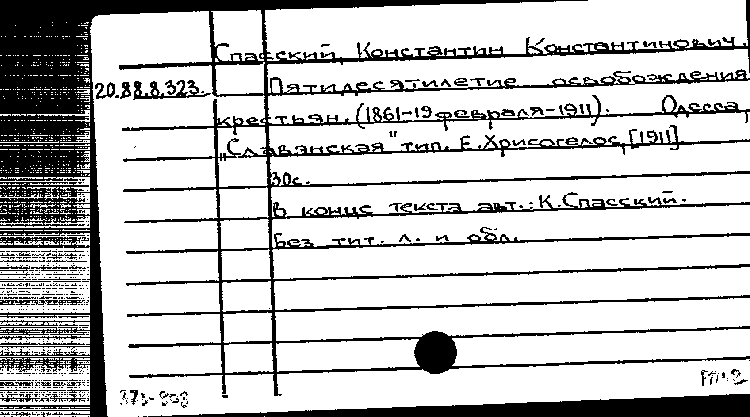 Спасский, Константин Константинович.
20.88.8.323. Пятидесятилетие освобождения
крестьян. (1861-19 февраля-1911). Одесса,
"Славянская" тип. Е. Хрисогелос, [1911]
30с.
В конце текста авт.: К. Спасский.
Без тит. л. и обл.